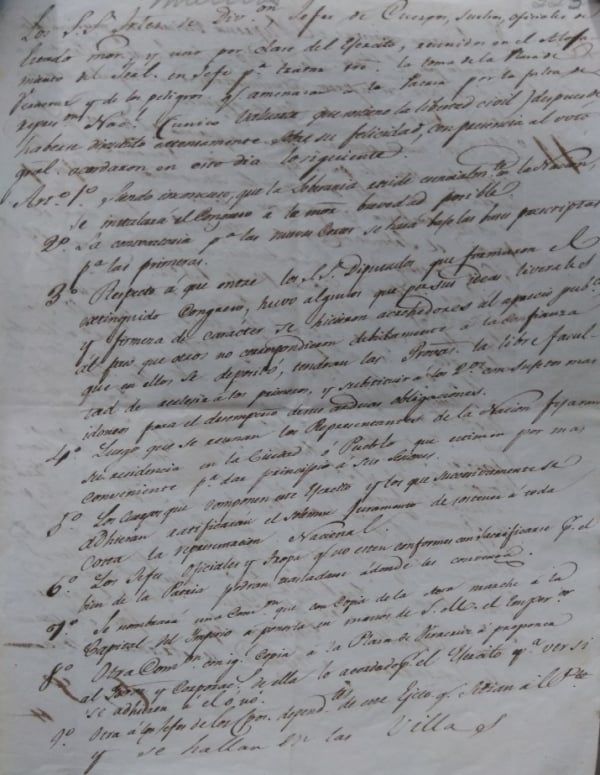 Los S.S. Gefes de Div.on, Jefes de Cuerpos, sueltos, oficiales de
Estado mayor y uno por clase del Exercito, reunidos en el Aloja-
miento del Gral. en Jefe p.a tratar sre. la toma de la Plaza de
Veracruz y de los peligros q.e amenazan á la Patria por la falta de
repres.on Nac.l Unico baluarte que sostiene la libertad civil, después de
haberse discutido atentamente sobre su felicidad, con presencia al voto
gral. acordaron en este dia lo siguiente.
Art.o 1.o Siendo inconcuso, que la Soberania reside esencialm.te en la Nacion,
se instalará el Congreso á la mor. brevedad posible.
2.o La convocatoria p.a las nuevas Cortes se hará bajo las bases prescriptas
p.a las primeras.
3.o Respecto á que entre los S.S. Diputados que formaron el
extinguido Congreso, huvo algunos que por sus ideas liberales
y firmeza de caracter se hicieron acrehedores al aprecio pub.co
al paso que otros no correspondieron debidamente á la confianza
que en ellos se depositó, tendran las Provas. la libre facul-
tad de reelegir á los primeros, y substituir á los 2.os con sugetos mas
idoneos para el desempeño de sus arduas obligaciones.
4.o Luego que se reunan los Representantes de la Nacion fijaran
su residencia en la Ciudad ó Pueblo que estimen por mas
conveniente p.a dar principio á sus Sesiones.
5.o Los Cuerpos que componen este Exercito y los que sucesivamente se
adhieran ratificarán el solemne Juramento de sostener á toda
costa la representacion Nacional.
6.o Los Jefes Oficiales y tropa q.e no esten conformes con sacrificarse p.r el
bien de la Patria podran trasladarse á donde les convenga.
7.o Se nombrará una Com.on que con Copia de la Acta marche á la
Capital del Imperio á ponerla en manos de S. M. el Emper.or
8.o Otra Com.on con ig.l Copia á la Plaza de Veracruz á proponer
al y Corporac.s de ella lo acordado p.r el Exercito p.a ver si
se adhieren á él, ó no.
9.o Otra á los Jefes de los Cpos. depend.tes de este Ejto q.e sitian á l P.te
y se hallan en las Villas